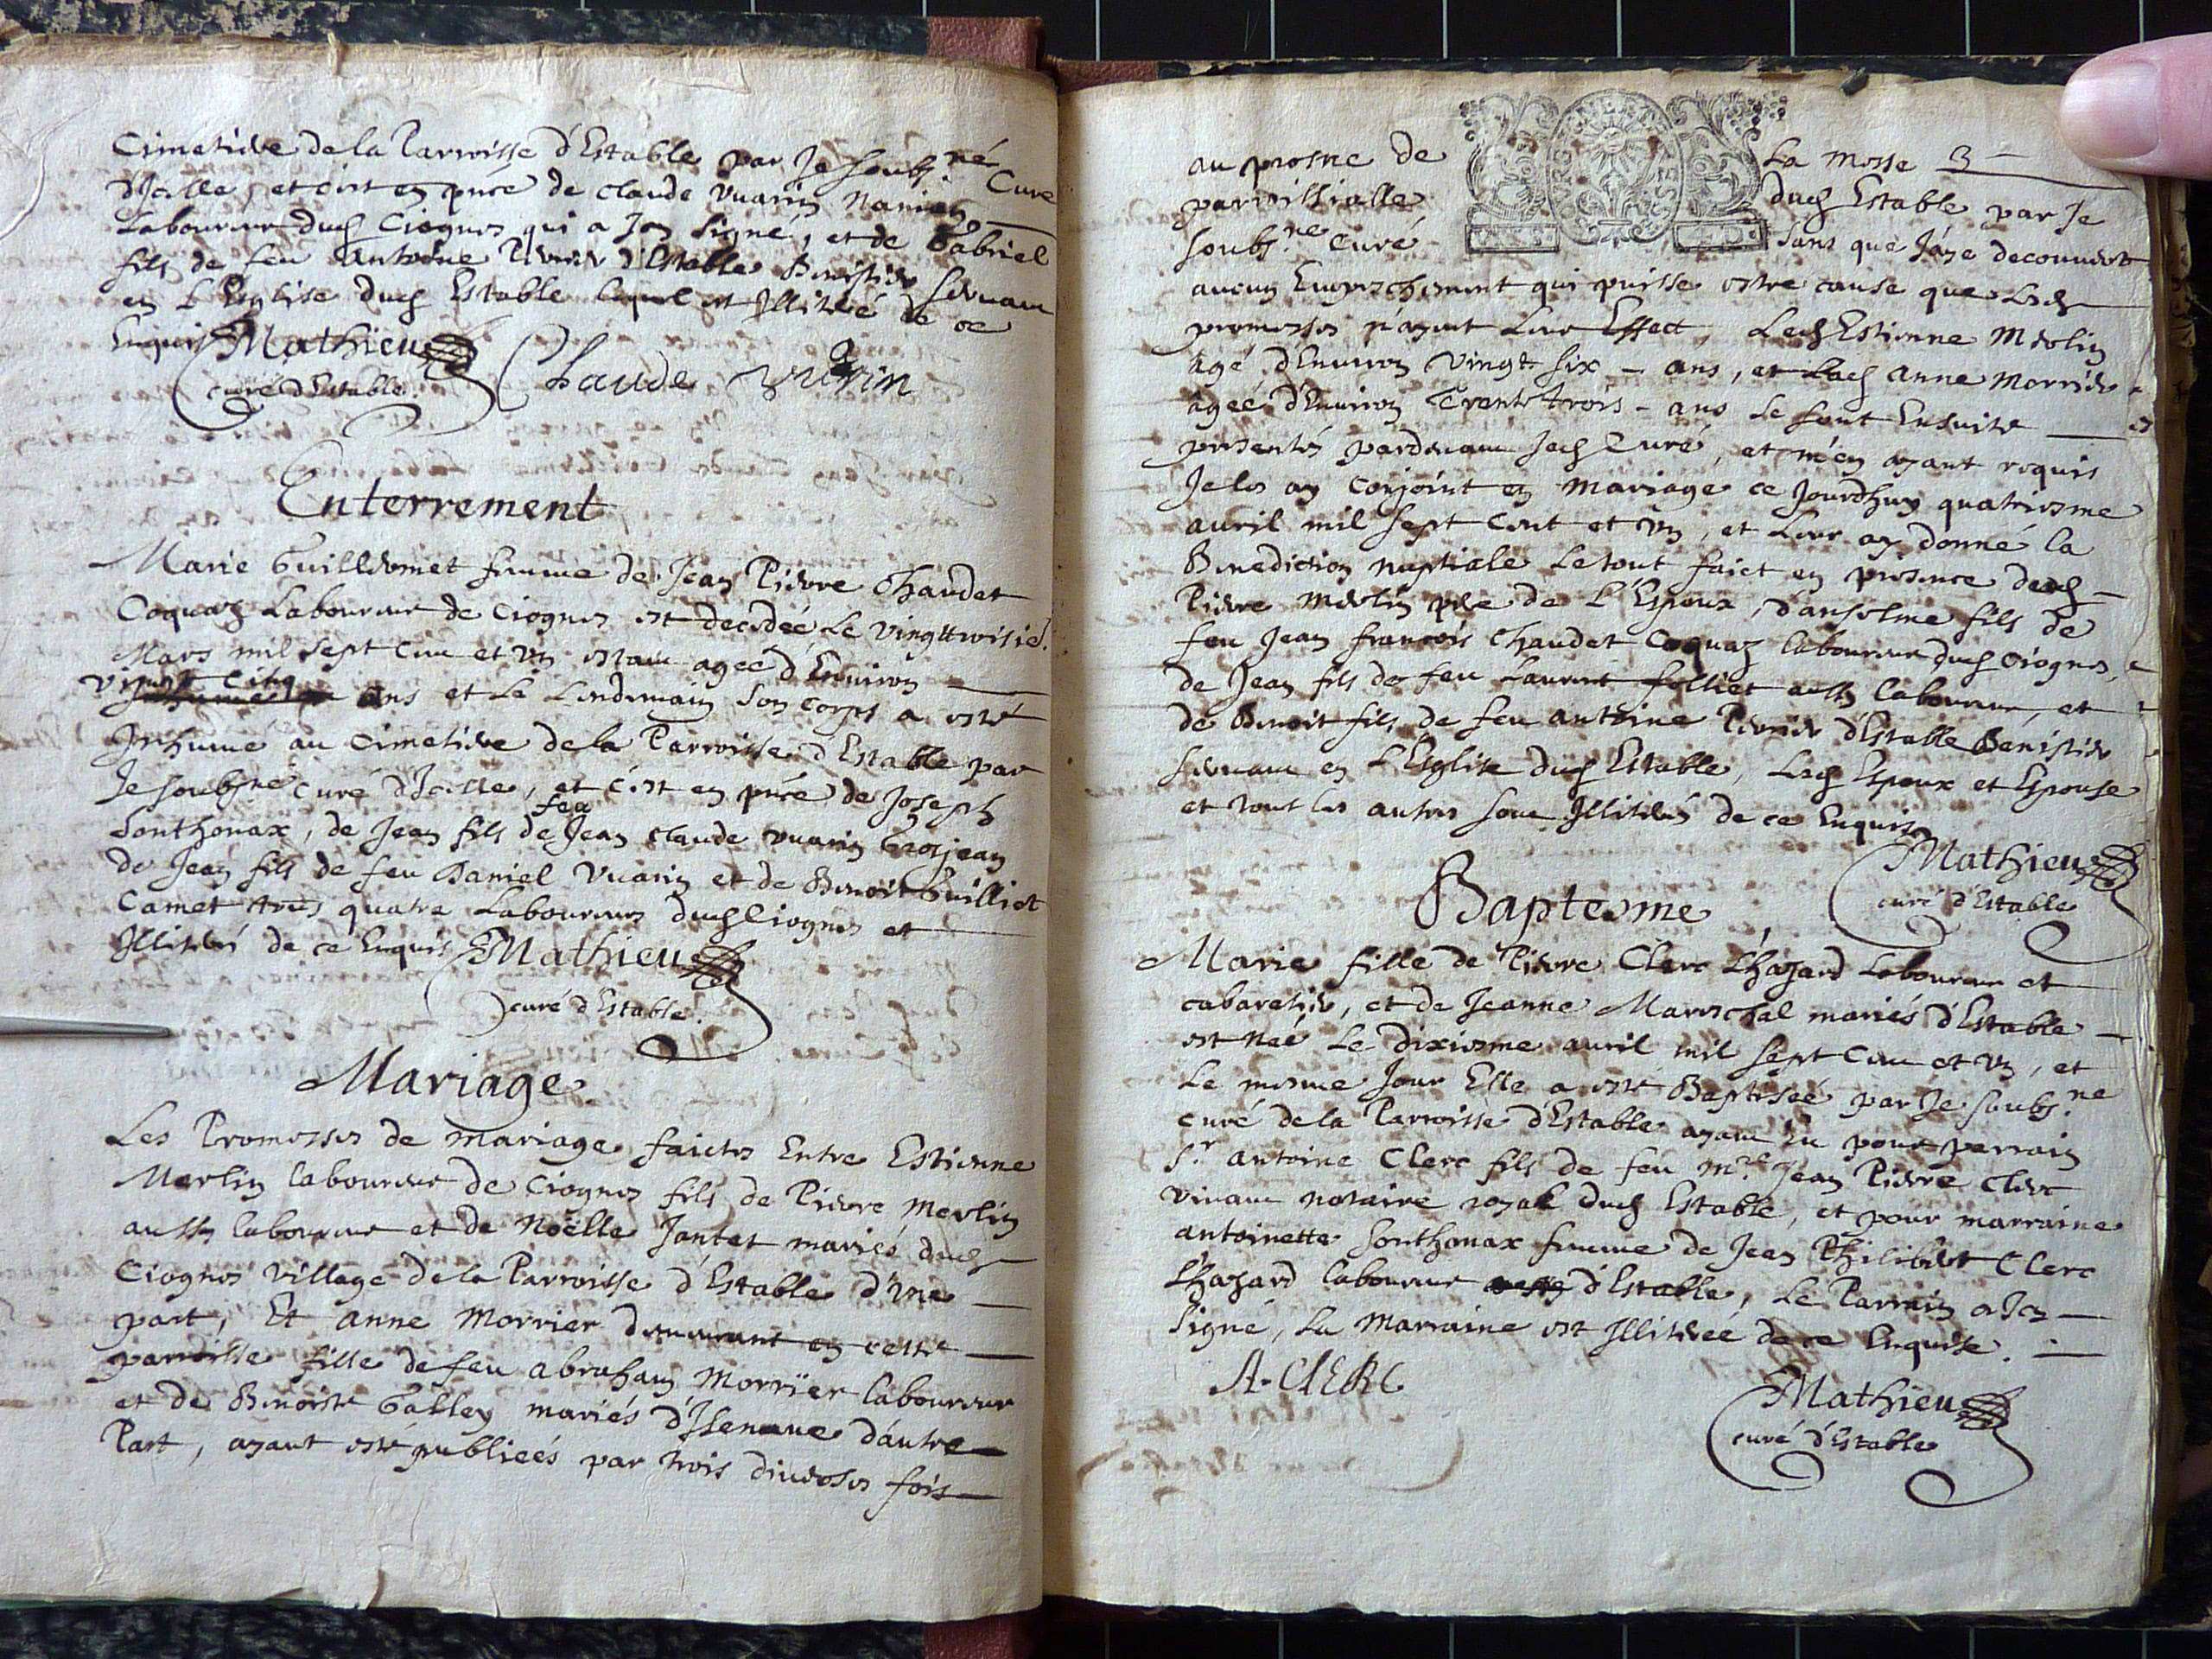 Cimetiere de la Parroisse d'Estable par Je soubs.né Curé
d'Jcelle, et c'est en pnce de Claude Vuarin Nanien
Laboureur dud Ciognes qui a Jcy signé, et de Gabriel
fils de feu Antoine Pernier d'Estable Benistier servant
en L'Esglise dud Estable lequel est Illiteré de ce
Enquis Mathieu
curé d'Estable. Claude vuarin
Enterrement
Marie Guillermet femme de Jean Pierre Chaudet
Coquaz Laboureur de Ciognes est decedeé Le vingttroisie.
Mars mil sept cent et un estant ageé d'Environ
vingt cinq ans et Le Lendemain son corps a esté
Jnhumé au Cimetiere de la Parroisse d'Estable par
Je soubsné curé d'Jcelle, et c'est en pnce de Joseph
Sonthonax, de Jean fils de feu Jean Claude vuarin Grosjean
de Jean fils de feu Daniel Vuarin et de Benoit Guilliot
Camet tous quatre Laboureurs dud Ciognes et
Illiterés de ce Enquis Mathieu
curé d'Estable.
Mariage
Les Promesses de mariage faictes Entre Estienne
Merlin laboureur de Ciognes fils de Pierre Merlin
aussy laboureur et de Noëlle Jantet mariés dud
Ciognes village de la Parroisse d'Estable d'une
part, Et anne Morrier demeurant en cette
parroisse fille de feu abraham Morrier laboureur
et de Benoiste Galley mariés d'Jsenave d'autre
Part, ayant esté publieés par trois diverses fois
au prosne de La Messe 3
parroissialle dud Estable par Je
soubs.né Curé sans que J'aye decouvert
aucun Empeschement qui puisse estre cause que Lesd
promesses n'ayent Leur Effect, Led Estienne Merlin
agé d'Environ vingt six ans, et Lad anne Morrier
ageé d'Environ Trente trois ans se sont Ensuite
presentés pardevant Jed Curé, et m'en ayant requis
Je les ay conjoint en Mariage ce Jourdhuy quatriesme
avril mil sept cent et un, et Leur ay donné la
Benediction nuptiale Le tout faict en presence dud
Pierre Merlin pere de L'Espoux, d'anselme fils de
feu Jean francois Chaudet Coquaz laboureur dud Ciognes,
de Jean fils de feu Laurent folliet aussy laboureur, et
de Benoit fils de feu antoine Pernier d'Estable Benistier
servant en L'Esglise dud Estable, Lesd Espoux et Espouse
et tout les autres sont Illiterés de ce Enquis
Mathieu
curé d'Estable
Baptesme
Marie fille de Pierre Clerc Lhazard Laboureur et
cabaretier, et de Jeanne Mareschal mariés d'Estable
est neé Le dixiesme avril mil sept cent et un, et
Le mesme Jour Elle a esté Baptiseé par Je soubs.né
curé de la Parroisse d'Estable ayant Eu pour parrain
S.r antoine Clerc fils de feu m.re Jean Pierre Clerc
vivant notaire royal dud Estable, et pour marraine
antoinette Sonthonax femme de Jean Philibert Clerc
Lhazard laboureur d'Estable, Le Parrain a Jcy
signé, La Marraine est Illitereé de ce Enquise.
A. CLERC
Mathieu
curé d'Estable